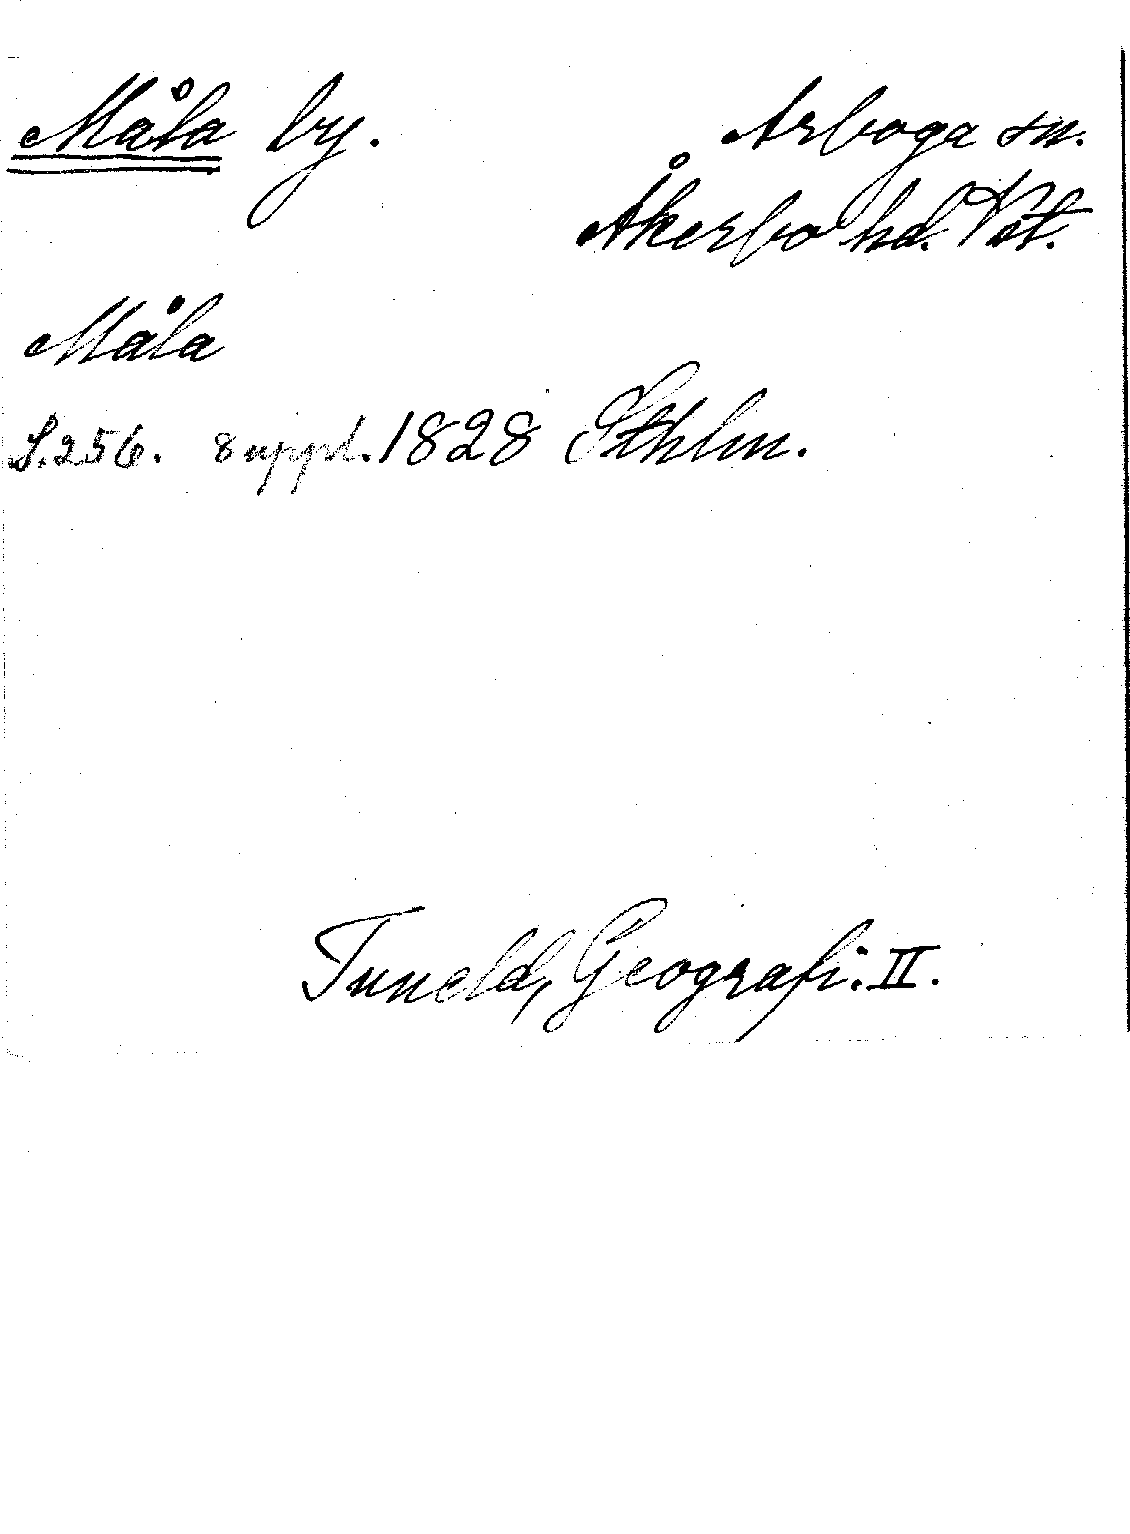 Måla by.
Arboga sn.
Åkerbo hd. Vst.
Måla
S. 256. 8 uppl. 1828 Sthlm.
Tuneld, Geografi. II.